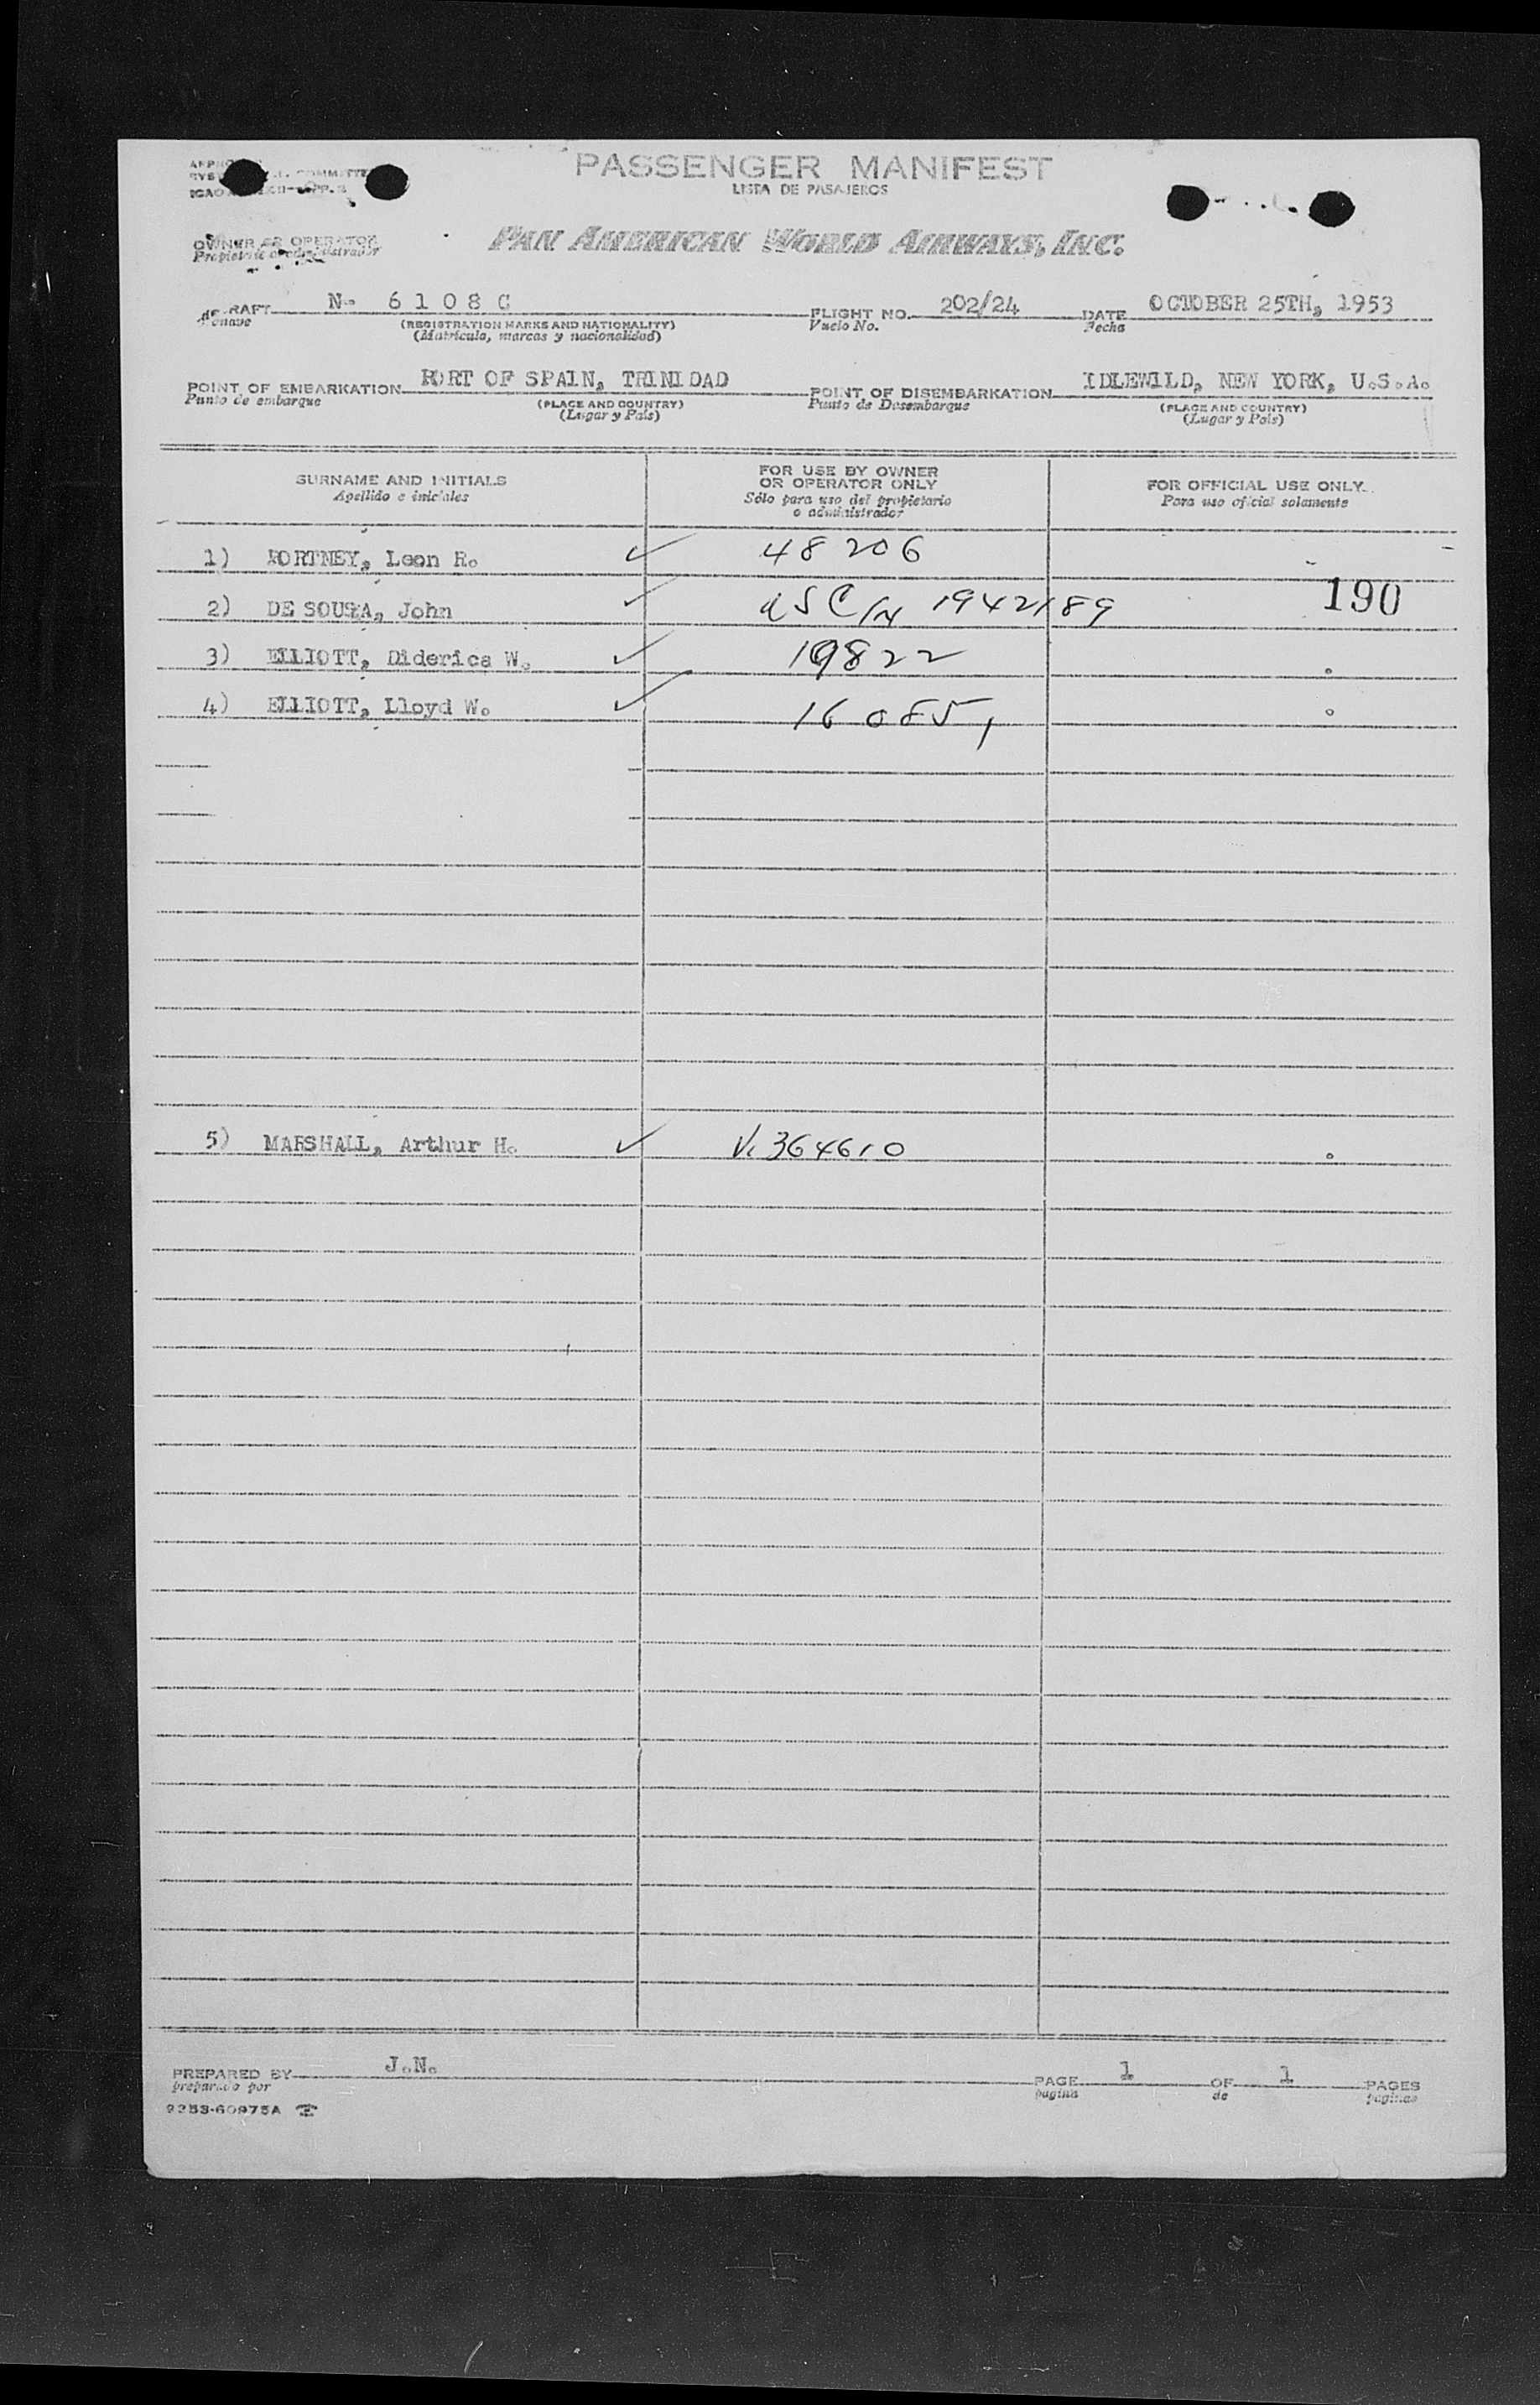 PASSENGER MANIFEST
LISTA DE PASAJEROS
OWNER OR OPERATOR
PAN AMERICAN WORLD AIRWAYS, INC.
N- 6 1 0 8 C
FLIGHT NO. 202/24
Vuelo No.
DATE OCTOBER 25TH, 1953
Fecha
(REGISTRATION MARKS AND NATIONALITY)
(Matrícula, marcas y nacionalidad)
POINT OF EMBARKATION PORT OF SPAIN, TRINIDAD
Punto de embarque
(PLACE AND COUNTRY)
(Lugar y País)
POINT OF DISEMBARKATION IDLEWILD, NEW YORK, U.S.A.
Punto de Desembarque
(PLACE AND COUNTRY)
(Lugar y País)
SURNAME AND INITIALS
Apellido e iniciales
FOR USE BY OWNER
OR OPERATOR ONLY
Sólo para uso del propietario
o administrador
FOR OFFICIAL USE ONLY
Para uso oficial solamente
1) Leon R. ✓ 48206
190
2) DE SOUSA, John ✓ USC/N 1942189
3) ELLIOTT, Diderica W. ✓ 19822
4) ELLIOTT, Lloyd W. ✓ 16085,
5) MARSHALL, Arthur H. ✓ 364610
PREPARED BY J.N.
preparado por
PAGE 1 OF 1 PAGES
pagina de paginas